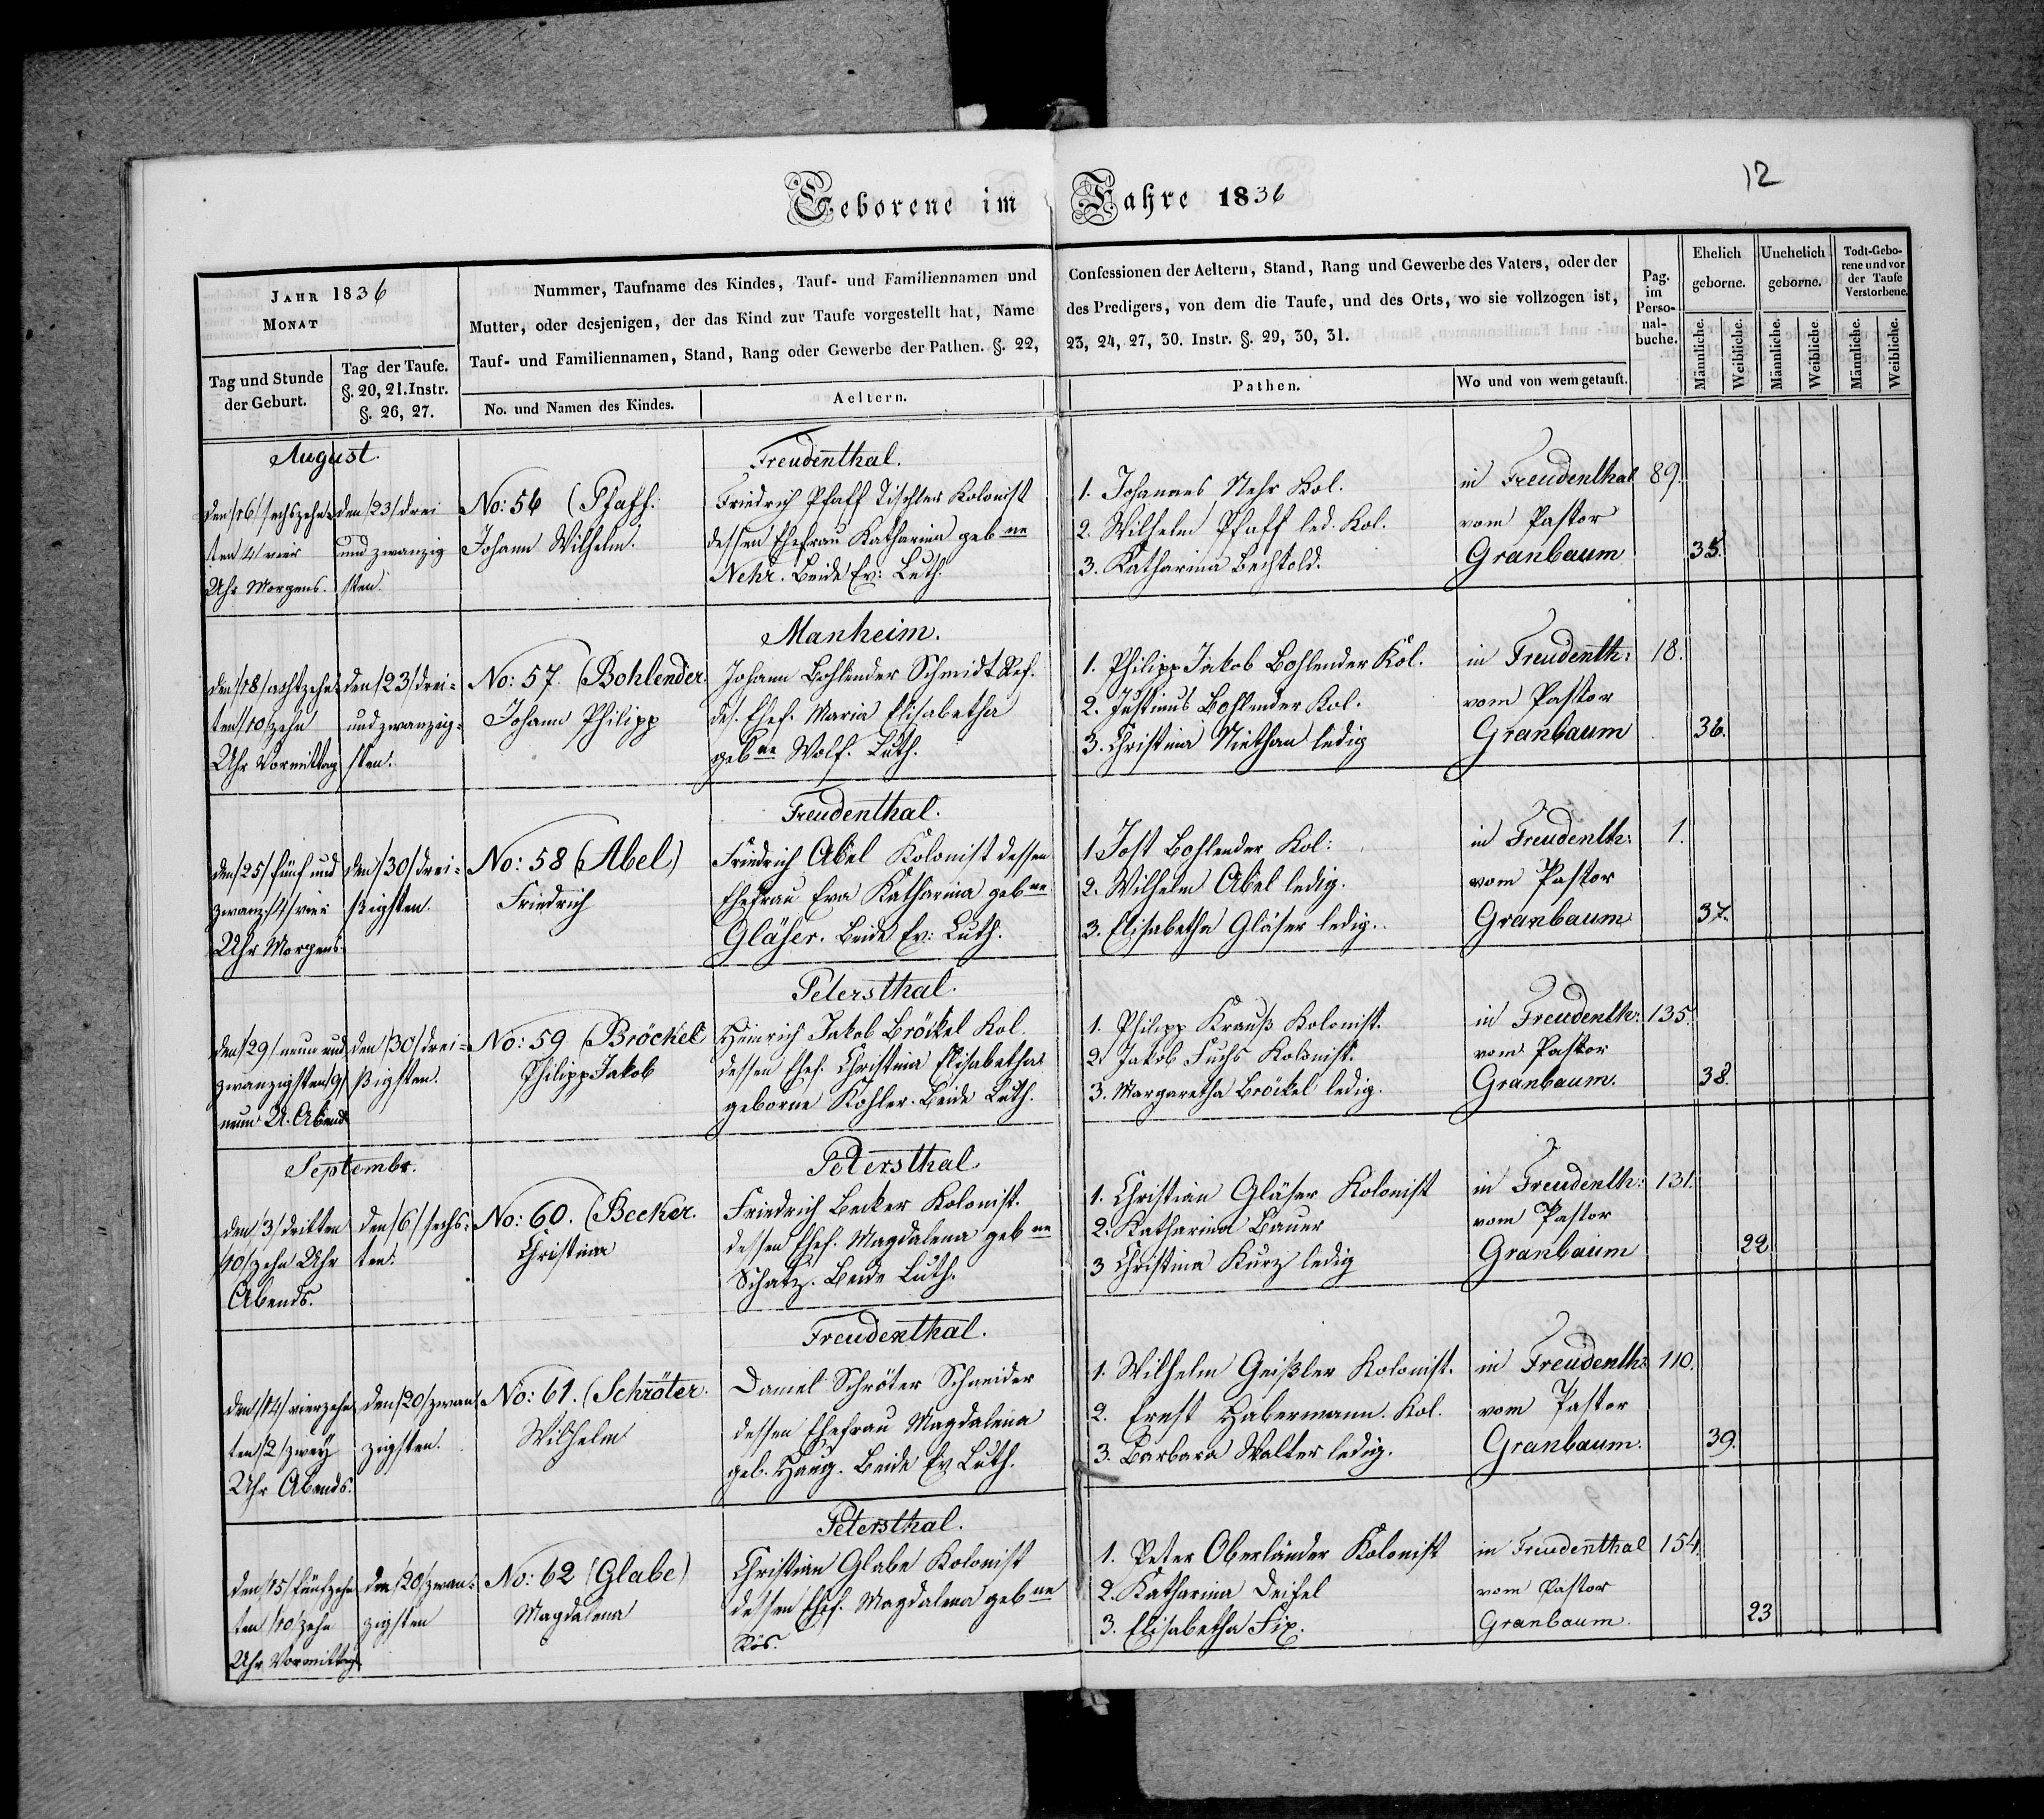 12
Geborene im Jahre 1836
JAHR 1836
MONAT
Tag und Stunde
der Geburt.
Tag der Taufe.
§. 20, 21. Instr.
§. 26, 27.
Nummer, Taufname des Kindes, Tauf- und Familiennamen und
Mutter, oder desjenigen, der das Kind zur Taufe vorgestellt hat, Name
Tauf- und Familiennamen, Stand, Rang oder Gewerbe der Pathen. §. 22,
No. und Namen des Kindes.
Aeltern.
Confessionen der Aeltern, Stand, Rang und Gewerbe des Vaters, oder der
des Predigers, von dem die Taufe, und des Orts, wo sie vollzogen ist,
23, 24, 27, 30. Instr. §. 29, 30, 31.
Pathen.
Wo und von wem getauft.
Pag.
im
Perso-
nal-
buche.
Ehelich
geborne.
Unehelich
geborne.
Todt-Gebo-
rene und vor
der Taufe
Verstorbene.
Männliche.
Weibliche.
Männliche.
Weibliche.
Männliche.
Weibliche.
August.
den /16/ sechszehn-
ten 4/ vier
Uhr Morgens.
den /23/ drei
und zwanzig
sten.
No: 56 (Pfaff.
Johann Wilhelm.
Freudenthal.
Friedrich Pfaff Tischler Kolonist
dessen Ehefrau Katharina geb ne
Nehr. Beide Ev: Luth.
1. Johannes Nehr Kol.
2. Wilhelm Pfaff led. Kol.
3. Katharina Bechtold.
in Freudenthal
vom Pastor
Granbaum
89.
35.
den /18/ achtzehn
ten /10/ zehn
Uhr Vormittag
den /23/ drei-
und zwanzig-
sten.
No: 57. (Bohlender.
Johann Philipp
Manheim.
Johann Bohlender Schmidt Ref.
des. Ehef. Maria Elisabetha
geb ne Wolf. Luth.
1. Philipp Jakob Bohlender Kol.
2. Justinus Bohlender Kol.
3. Christina Niethan ledig
in Freudenth:
vom Pastor
Granbaum
18.
36.
den /25/ fünf und
zwanz /4/ vier
Uhr Morgens.
den /30/ drei-
ßigsten.
No: 58 (Abel)
Friedrich
Freudenthal.
Friedrich Abel Kolonist dessen
Ehefrau Eva Katharina geb ne
Gläser. Beide Ev: Luth.
1. Jost Bohlender Kol:
2. Wilhelm Abel ledig.
3. Elisabetha Gläser ledig.
in Freudenth:
vom Pastor
Granbaum
1.
37.
den /29/ neun und
zwanzigsten /9/
neun U. Abends
den /30/ drei-
ßigsten.
No: 59 (Bröckel
Philipp Jakob
Petersthal.
Heinrich Jakob Bröckel Kol.
dessen Ehef. Christina Elisabetha
geborne Kohler. Beide Luth.
1. Philipp Krauß Kolonist.
2. Jakob Fuchs Kolonist.
3. Margaretha Bröckel ledig.
in Freudenth:
vom Pastor
Granbaum.
135.
38.
Septembr.
den /3/ dritten
/10/ zehn Uhr
Abends.
den /6/ sechs-
ten.
No: 60. (Becker.
Christina
Petersthal.
Friedrich Becker Kolonist.
dessen Ehef. Magdalena geb ne
Schatz. Beide Luth.
1. Christian Gläser Kolonist
2. Katharina Bauer
3 Christina Kurz ledig
in Freudenth:
vom Pastor
Granbaum
131.
22
den /14/ vierzehn
ten /2/ zwey
Uhr Abends.
den /20/ zwan
zigsten.
No: 61. (Schröter.
Wilhelm
Freudenthal.
Daniel Schröter Schneider
dessen Ehefrau Magdalena
geb. Haug. Beide Ev Luth.
1. Wilhelm Geißler Kolonist.
2. Ernst Habermann. Kol.
3. Barbara Walter ledig.
in Freudenth:
vom Pastor
Granbaum.
110.
39.
den /15/ fünfzehn
ten /10/ zehn
Uhr Vormittags
den /20/ zwan-
zigsten
No: 62 (Glabe)
Magdalena
Petersthal.
Christian Glabe Kolonist
dessen Ehef. Magdalena geb ne
Rös.
1. Peter Oberländer Kolonist
2. Katharina Deisel
3. Elisabetha Fix.
in Freudenthal
vom Pastor
Granbaum.
154.
23